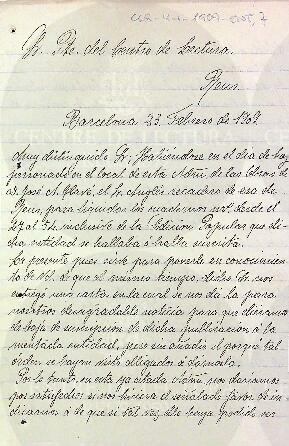 CLR-4-1-1909-
Sr. Pte. del Centro de Lectura.
Reus.
Barcelona 23 Febrero de 1909
Muy distinguido Sr: Habiéndose en el dia de hoy
personado en el local de esta Admón. de las Obras de
D. José A. Clavé, el Sr. recadero de esa de
Reus, para liquidar los cuadernos desde el
27 al inclusive de la Edición Popular que di-
cha entidad se hallaba ó halla suscrita.
La presente pues sirve para ponerle en conocimien-
to de Vd. de que al mismo tiempo, dicho Sr. nos
entregó una carta en la cual se nos dá la para
nosotros desagradable noticia para que diéramos
de baja de suscripción de dicha publicación á la
mentada entidad, mas sin añadir el porqué tal
orden se hayan visto obligados á dárnosla.
Por lo tanto, en esta ya citada Admón. nos daríamos
por satisfechos si nos hiciera el señalado favor de in-
dicarnos á lo que si tal vez, ello haya podido ser